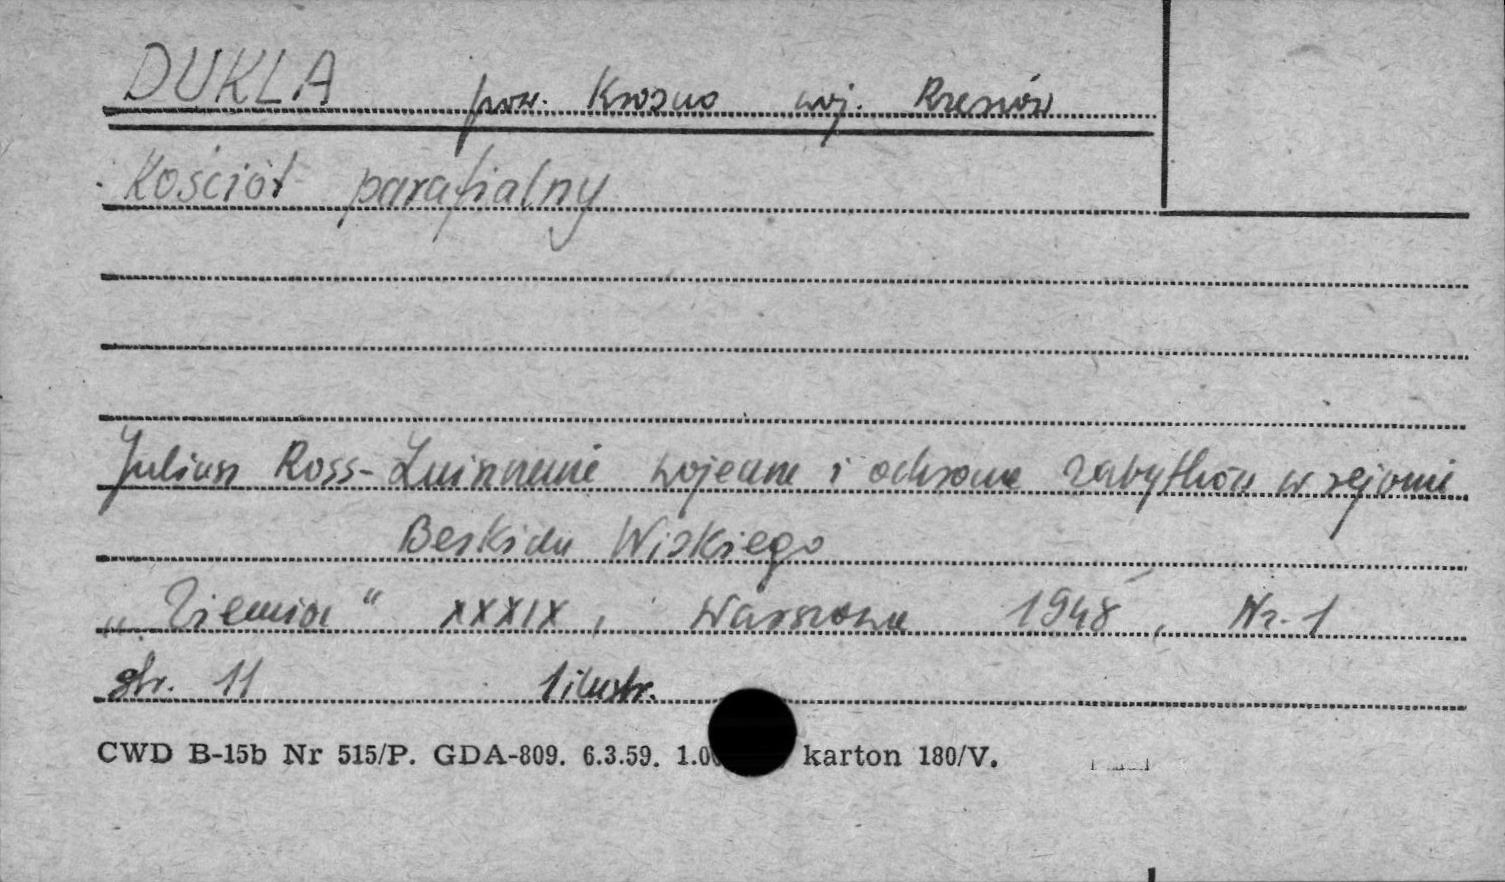 DUKLA pow. Krosno woj. Rzeszów
Kościół parafialny
Julian Ross - Zniszczenie wojenne i ochrona zabytków w rejonie
Beskidu Niskiego
„Ziemia" XXXIX, Warszawa 1948, Nr. 1
str. 11 1 ilustr.
CWD B-15b Nr 515/P. GDA-809. 6.3.59. 1.00 karton 180/V.